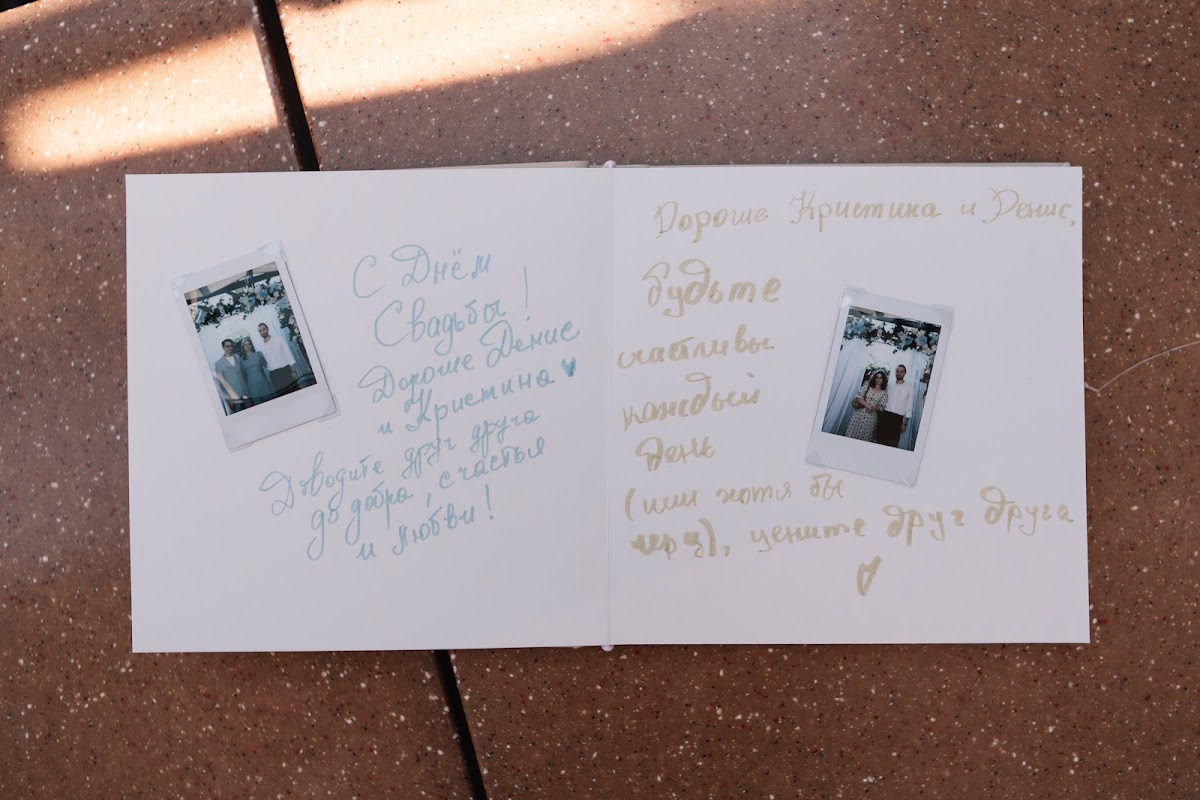 С Днём
Свадьбы!
Дорогие Денис
и Кристина
Доводите друг друга
до добра, счастья
и любви!
Дорогие Кристина и Денис,
будьте
счастливы
каждый
день
(или хотя бы
через), цените друг друга